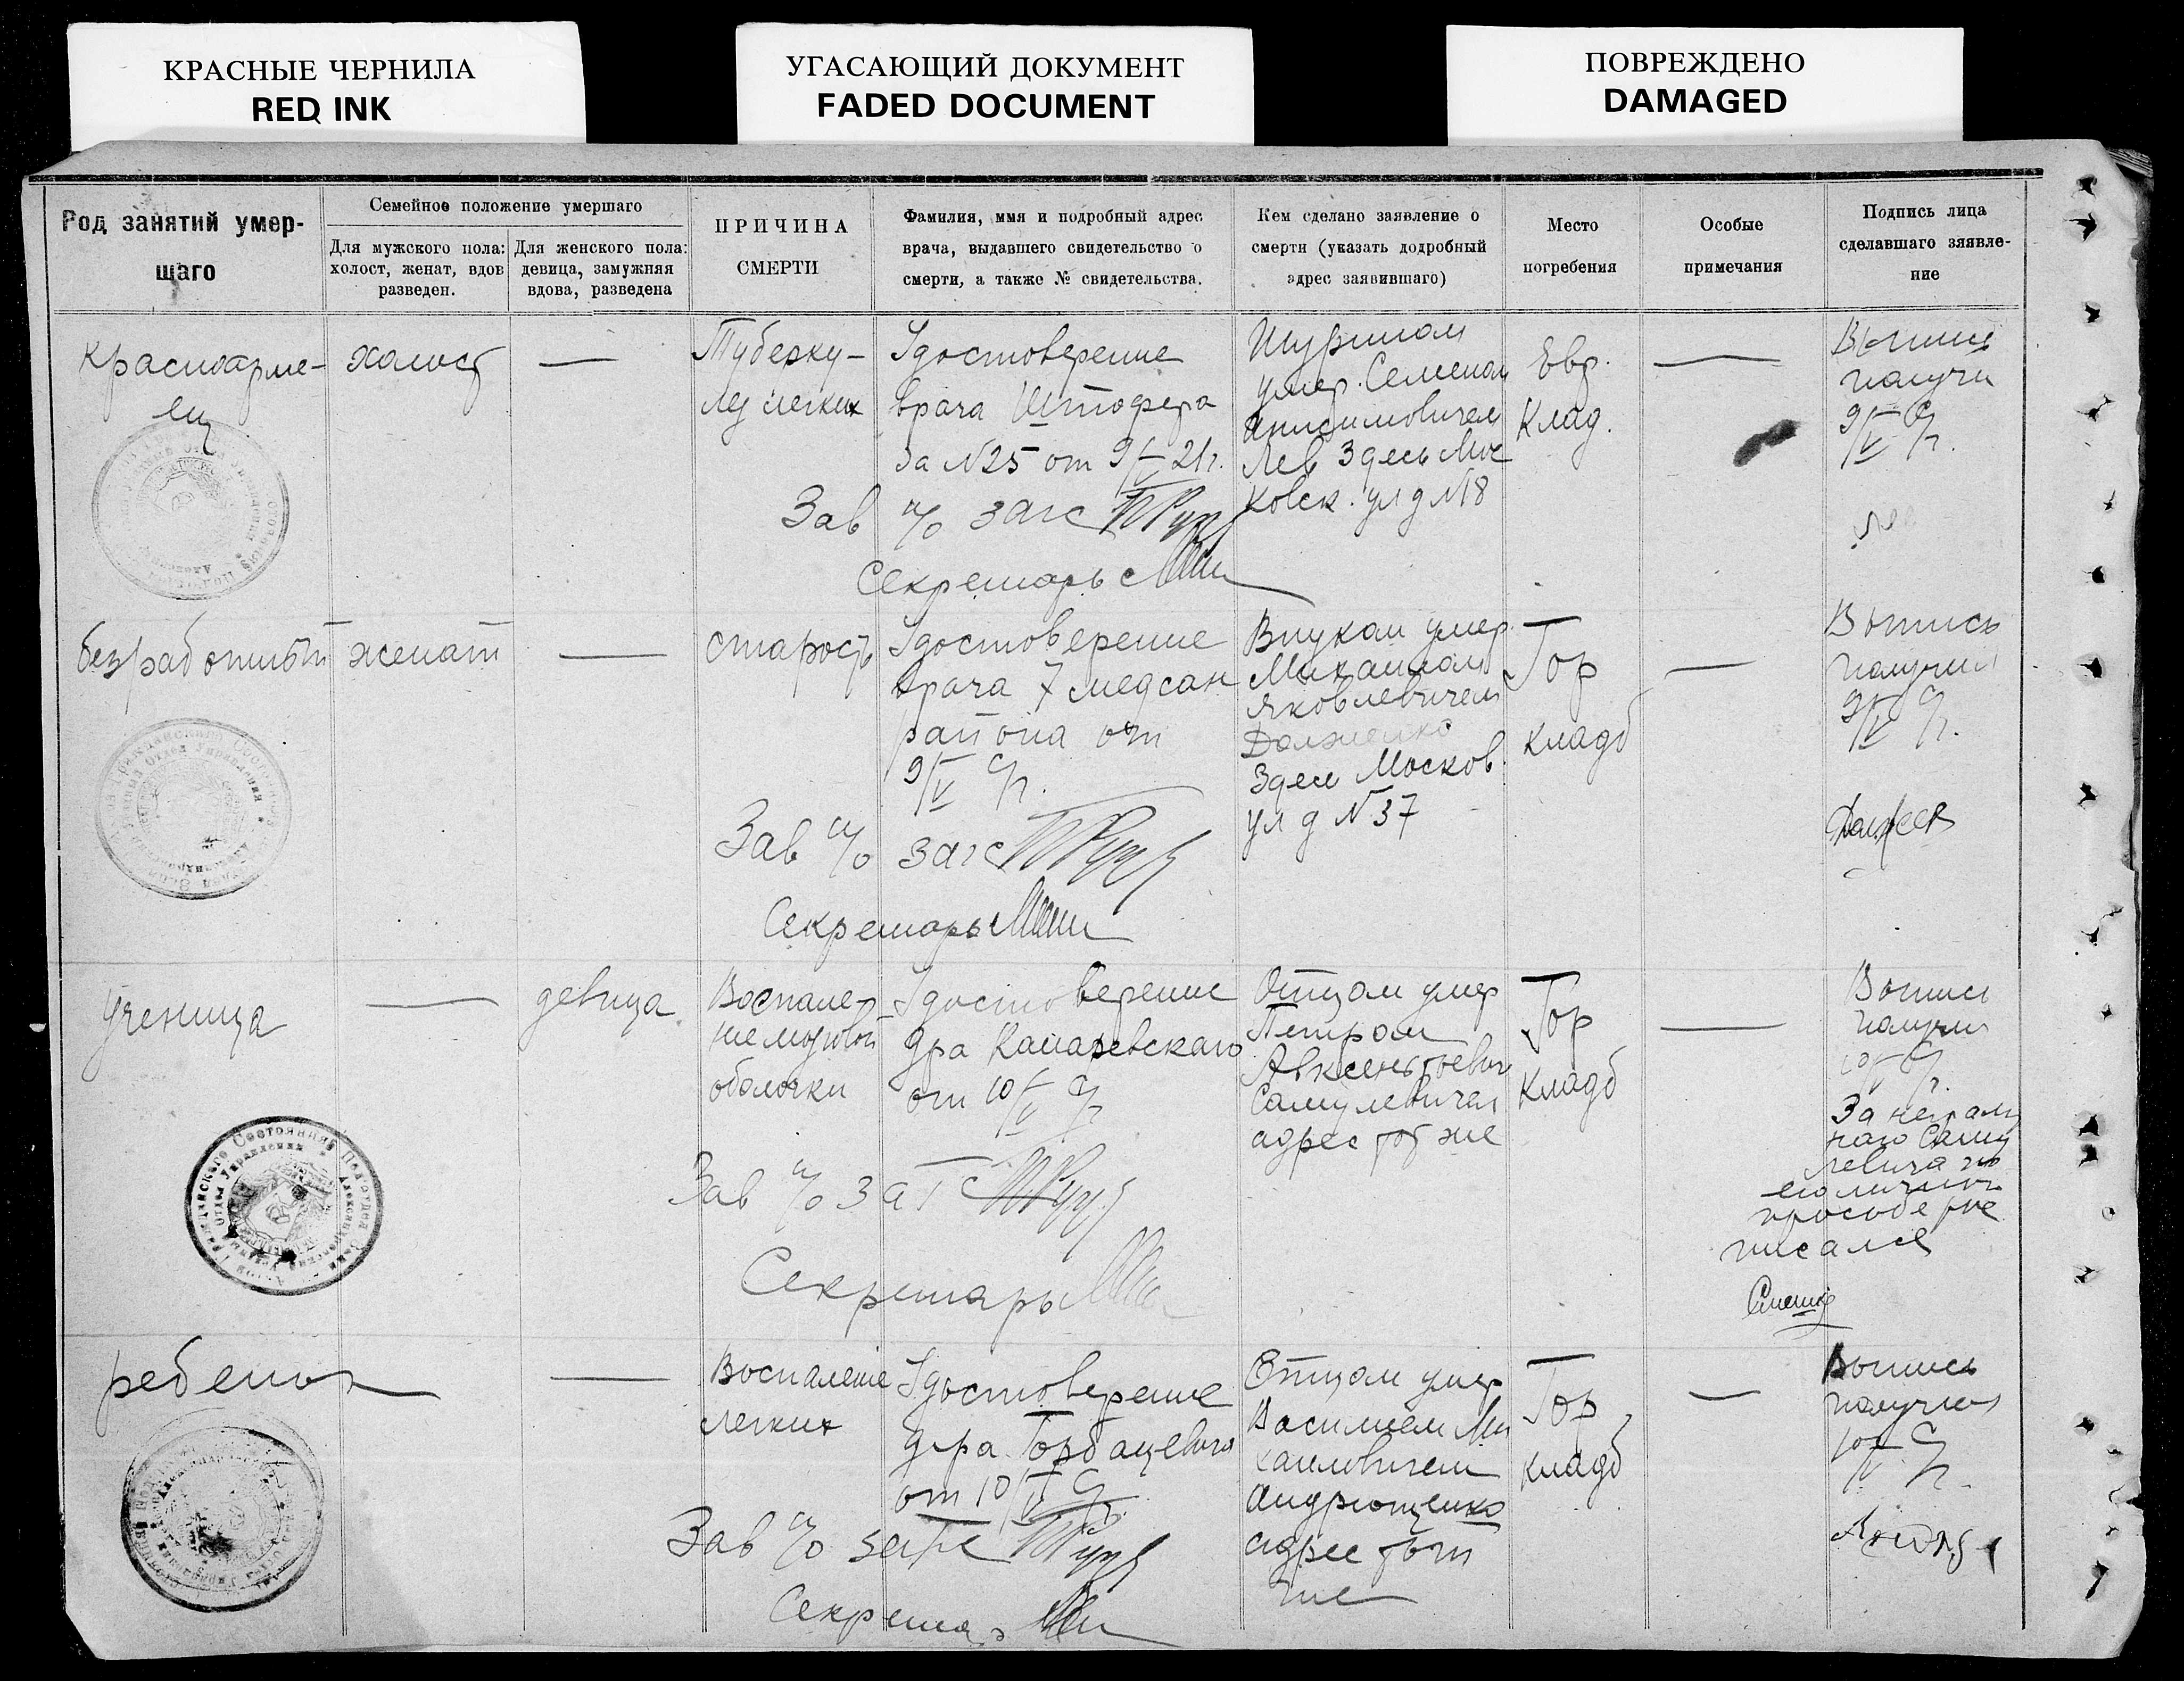 КРАСНЫЕ ЧЕРНИЛА
RED INK
УГАСАЮЩИЙ ДОКУМЕНТ
FADED DOCUMENT
ПОВРЕЖДЕНО
DAMAGED
Род занятий умер-
шаго
Семейное положение умершаго
Для мужского пола:
холост, женат, вдов
разведен.
Для женского пола:
девица, замужняя
вдова, разведена
ПРИЧИНА
СМЕРТИ
Фамилия, ммя и подробный адрес
врача, выдавшего свидетельство о
смерти, а также № свидетельства.
Кем сделано заявление о
смерти (указать додробный
адрес заявившаго)
Место
погребения
Особые
примечания
Подпись лица
сделавшаго зяявле-
ние
Красноарме-
ец
холост
—
Туберку-
лез легких
Удостоверение
врача Штофера
За №25 от 9/V 21г.
Шурином
умер. Семеном
Анисимовичем
Лев Здесь Мос
ковск. ул д №18
Евр.
Клад.
—
получи
9/V с/г.
Зав п/о загс
Секретарь
безработный
женат
—
старость
Удостоверение
врача 7 медсан
района от
9/V с/г.
Внуком умер.
Михаилом
Яковлевичем
Долженко
Здесь Москов.
ул д №37
Гор
кладб
—
Выпись
получил
9/V с/г.
Зав п/о загс
Секретарь
ученица
—
девица
Воспале-
ние мозговой
оболочки
Удостоверение
д-ра
от 10/V с/г
Отцом умер
Петром
Авксентьевич
Самулевичем
адрес тот же
Гор
кладб
—
Выпись
получил
10/V с/г.
За неграмот
наго Саму
левича по
его личной
просьбе рас
писался
Зав п/о загс
Секретарь
ребенок
—
Воспаление
легких
Удостоверение
д-ра Горбацевича
от 10/V с/г.
Отцом умер
Василием Ми
хайловичем
Андрющенко
адрес тот
же
Гор
кладб
—
Выпись
получил
10/V с/г.
Зав п/о загс